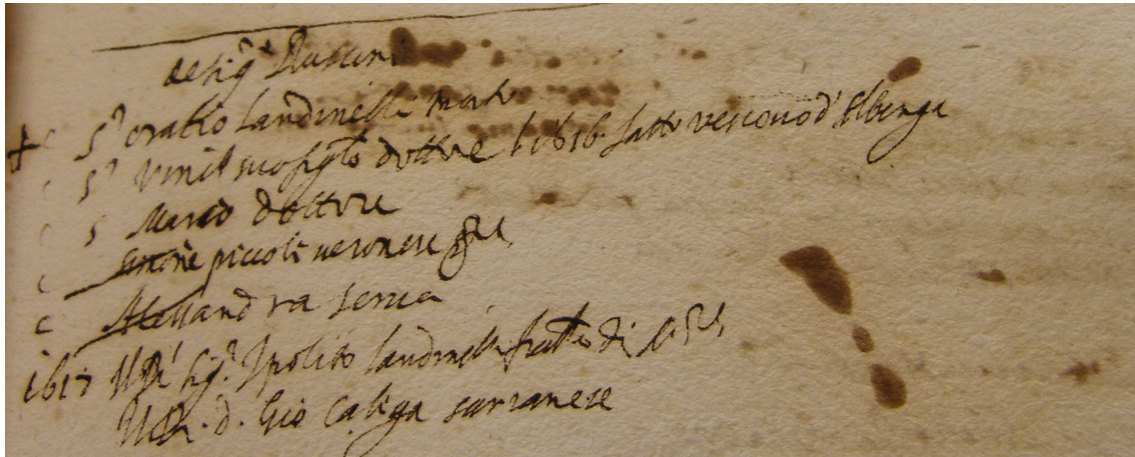 de sig.ri
+ c S.r oratio landinelli
c S.r Vinc.o suo figlo dottore 1616 fatto vescovo d'Albenga
c S Mario dottore
c simone piccoli veronese
c Alessandra serva
1617 sig.r Ipolito landinelli frate di
d. Gio Caliga sarzanese